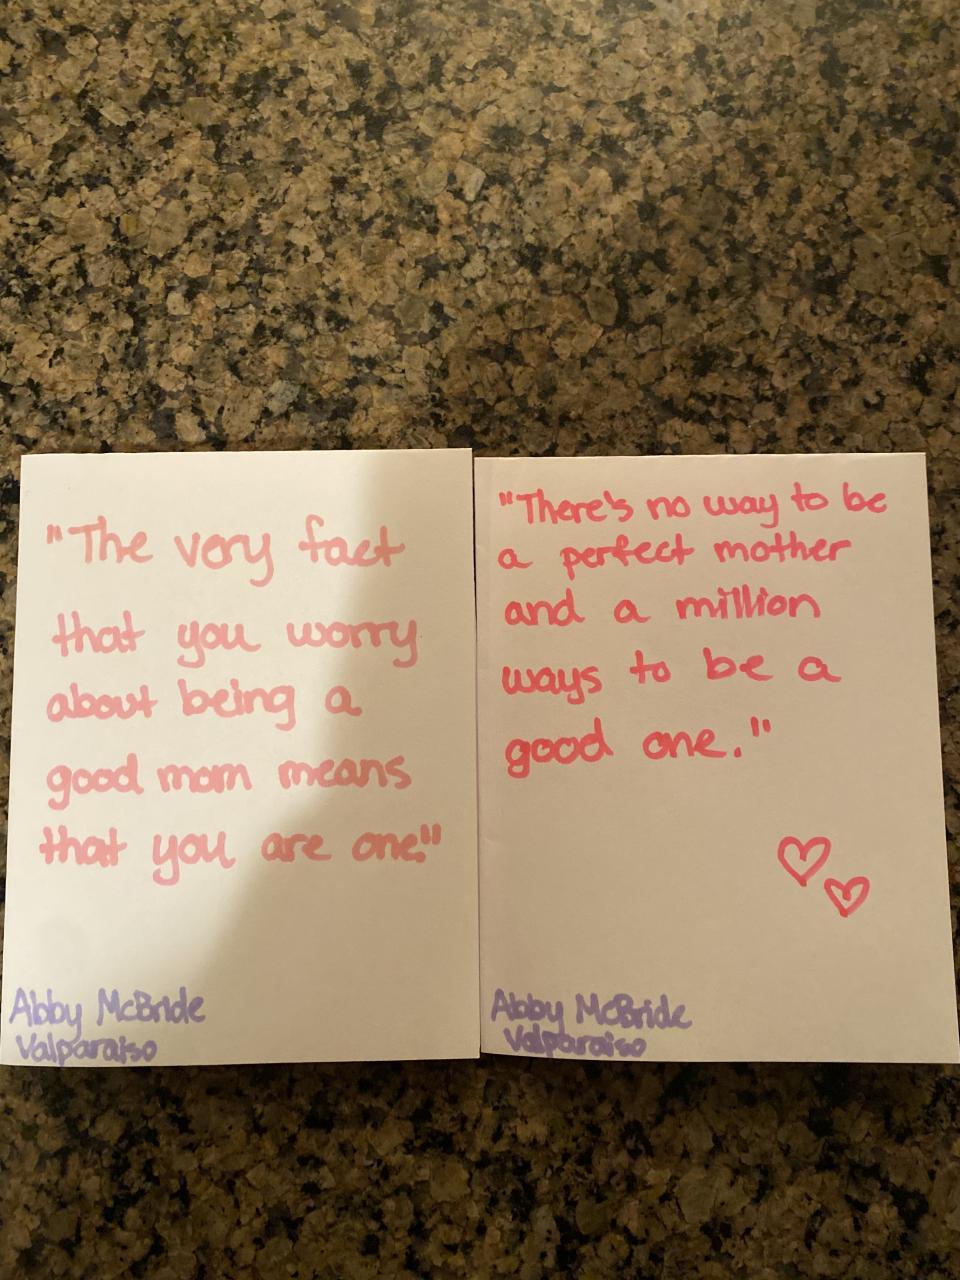 "The very fact
that you worry
about being a
good mom means
that you are one."
Abby McBride
Valparaiso
"There's no way to be
a perfect mother
and a million
ways to be a
good one."
Abby McBride
Valparaiso